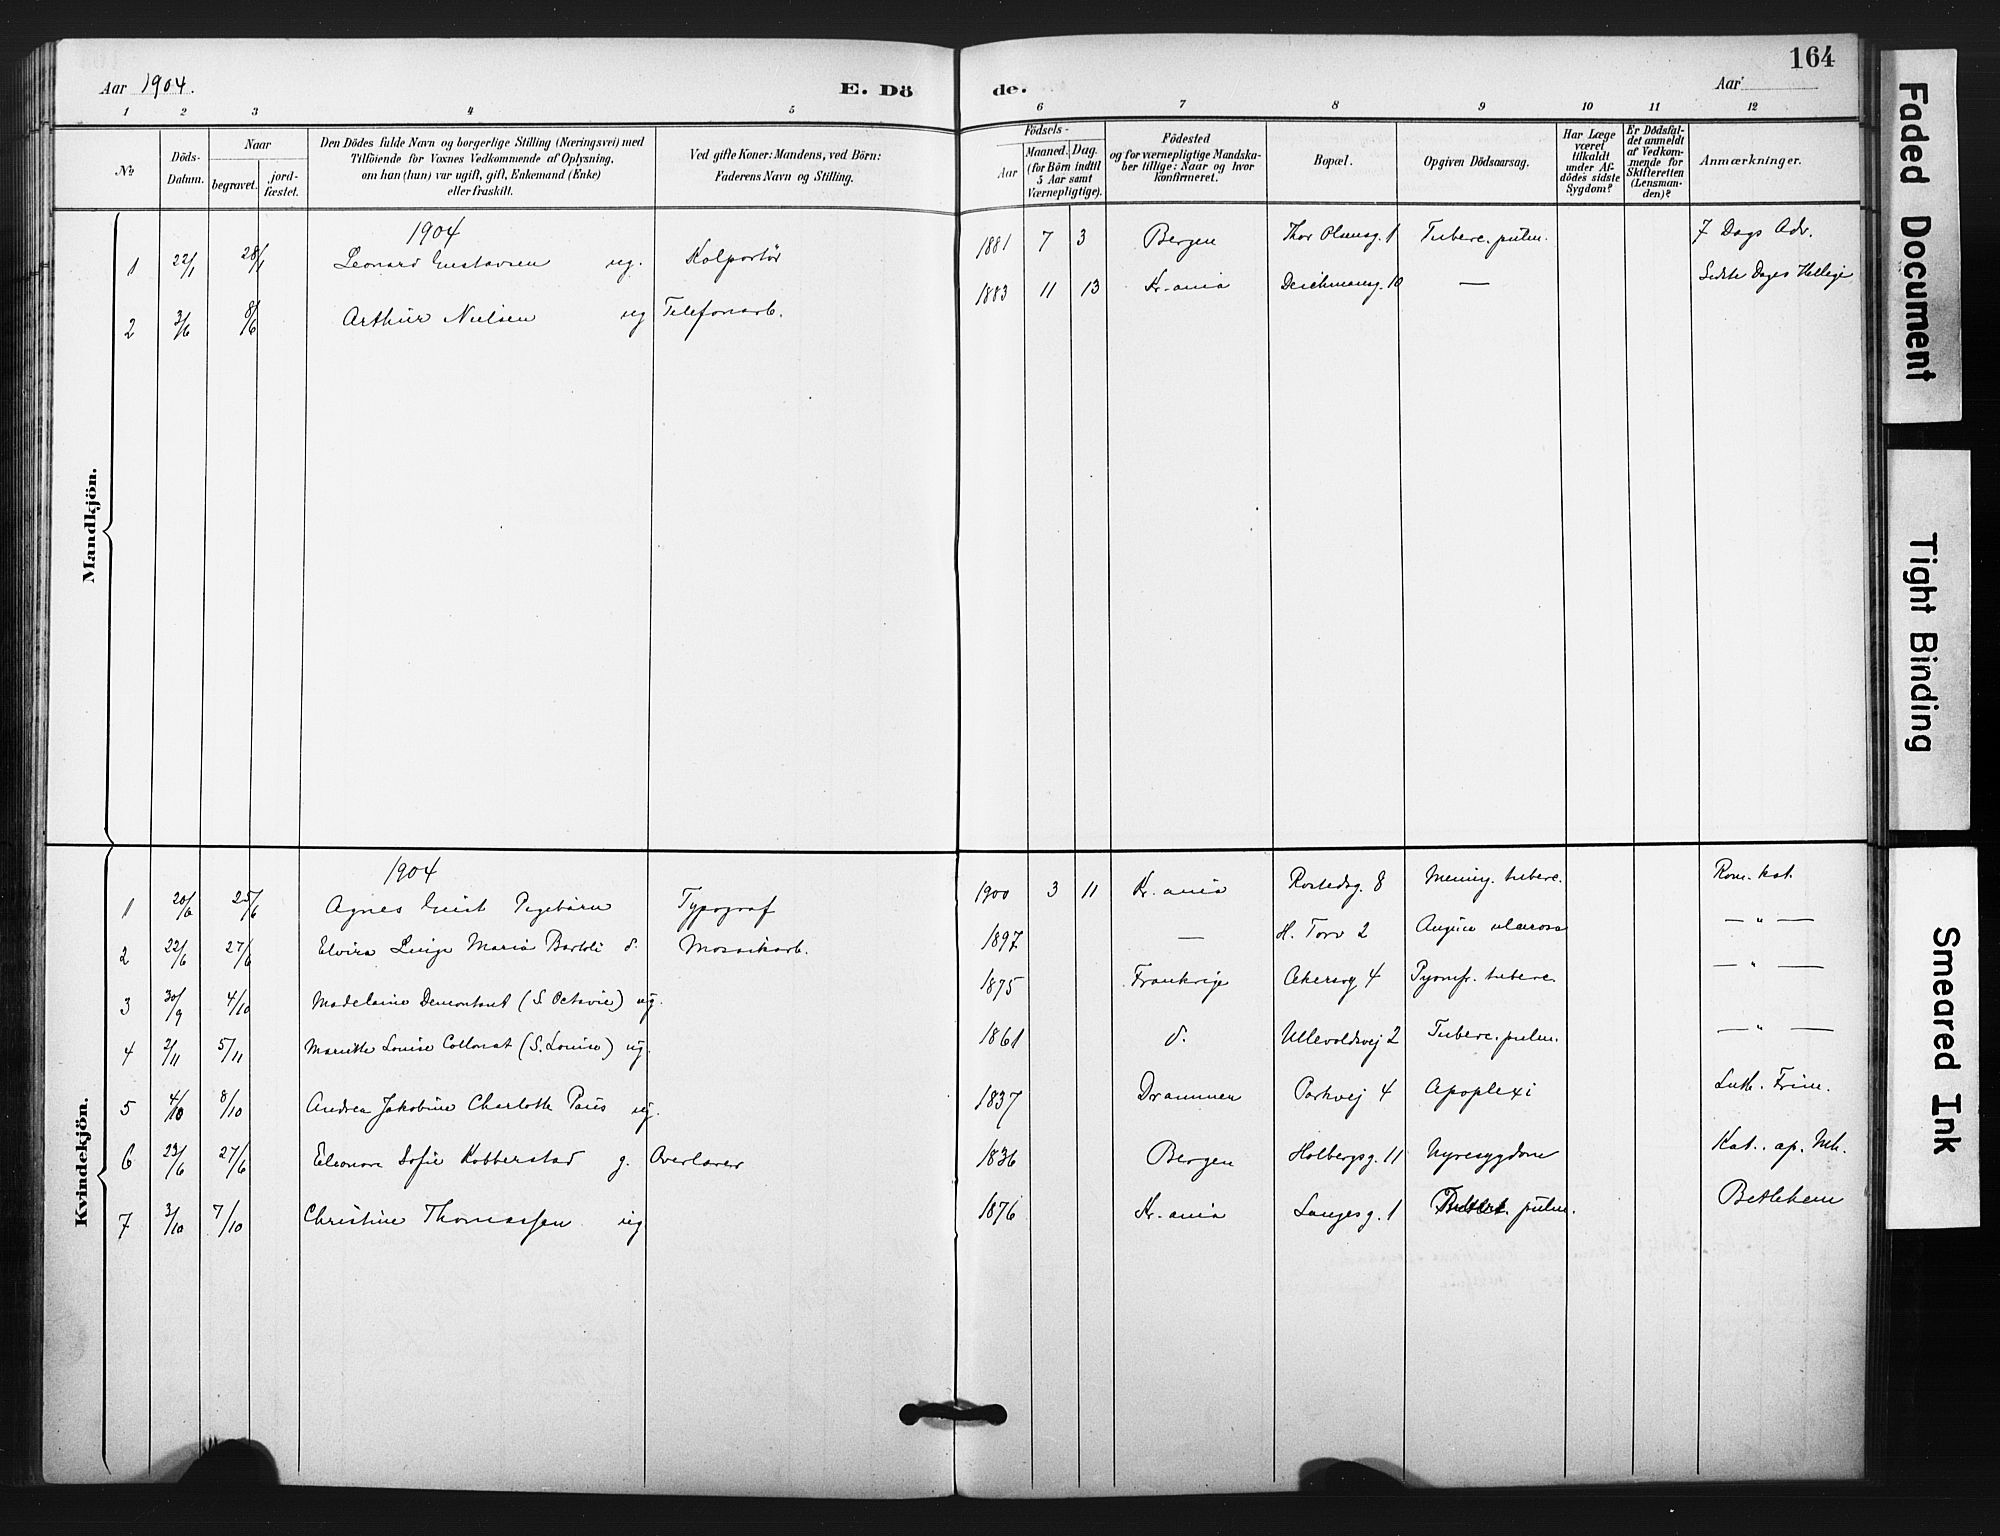 164
Aar 1904. E. Dö de. Aar
1 2 3 4 5 6 7 8 9 10 11 12
№
Döds-Datum.
Naar
begravet. jord-fæstet.
Den Dödes fulde Navn og borgerlige Stilling (Næringsvei) med
Tilföiende for Voxnes Vedkommende af Oplysning,
om han (hun) var ugift, gift, Enkemand (Enke)
eller fraskilt.
Ved gifte Koner: Mandens, ved Börn:
Faderens Navn og Stilling.
Födsels-
Aar Maaned. Dag.
(for Börn indtil
5 Aar samt
Værnepligtige).
Födested
og for værnepligtige Mandska-
ber tillige: Naar og hvor
konfirmeret.
Bopæl.
Opgiven Dödsaarsag.
Har Læge
været
tilkaldt
under Af-
dödes sidste
Sygdom?
Er Dödsfal-
det anmeldt
af Vedkom-
mende for
Skifteretten
(Lensman-
den)?
Anmærkninger.
Mandkjön.
1904
1 22/1 28/1 Leonard Gustavsen ug. Kolportör 1881 7 3 Bergen Thor Olsensg. 1 Tuberc. pulm. 7 Dags Adv.
2 3/6 8/6 Arthur Nielsen ug Telefonarb. 1883 11 13 Kr.ania Deichmansg. 10 — Sidste Dages Hellige
Kvindekjön.
1904
1 20/6 25/6 Agnes Pigebarn Typograf 1900 3 11 Kr.ania 8 Mening. tuberc. Rom. kat.
2 22/6 27/6 Elvira Luige Maria Bartoli d. Mosaikarb. 1897 — H. Torv 2 Angina — " —
3 30/9 4/10 Madelaine (S. Octavie) ug. 1875 Frankrige Akersvg 4 tuberc. — " —
4 2/11 5/11 Louise (S. Louise) ug. 1861 d. Ullevoldsvej 2 Tuberc. pulm. — " —
5 4/10 8/10 Andrea Jakobine Charlotte Paus ug. 1837 Drammen Parkvej 4 Apoplexi Luth. Frim.
6 23/6 27/6 Eleonora Sofie Kobberstad g. Overlærer 1836 Bergen Holbergsg. 11 Nyresygdom Kat. ap. Mh.
7 3/10 7/10 Christine Thomassen ug 1876 Kr.ania Langesg. 1 pulm. Betlehem
Faded Document
Tight Binding
Smeared Ink